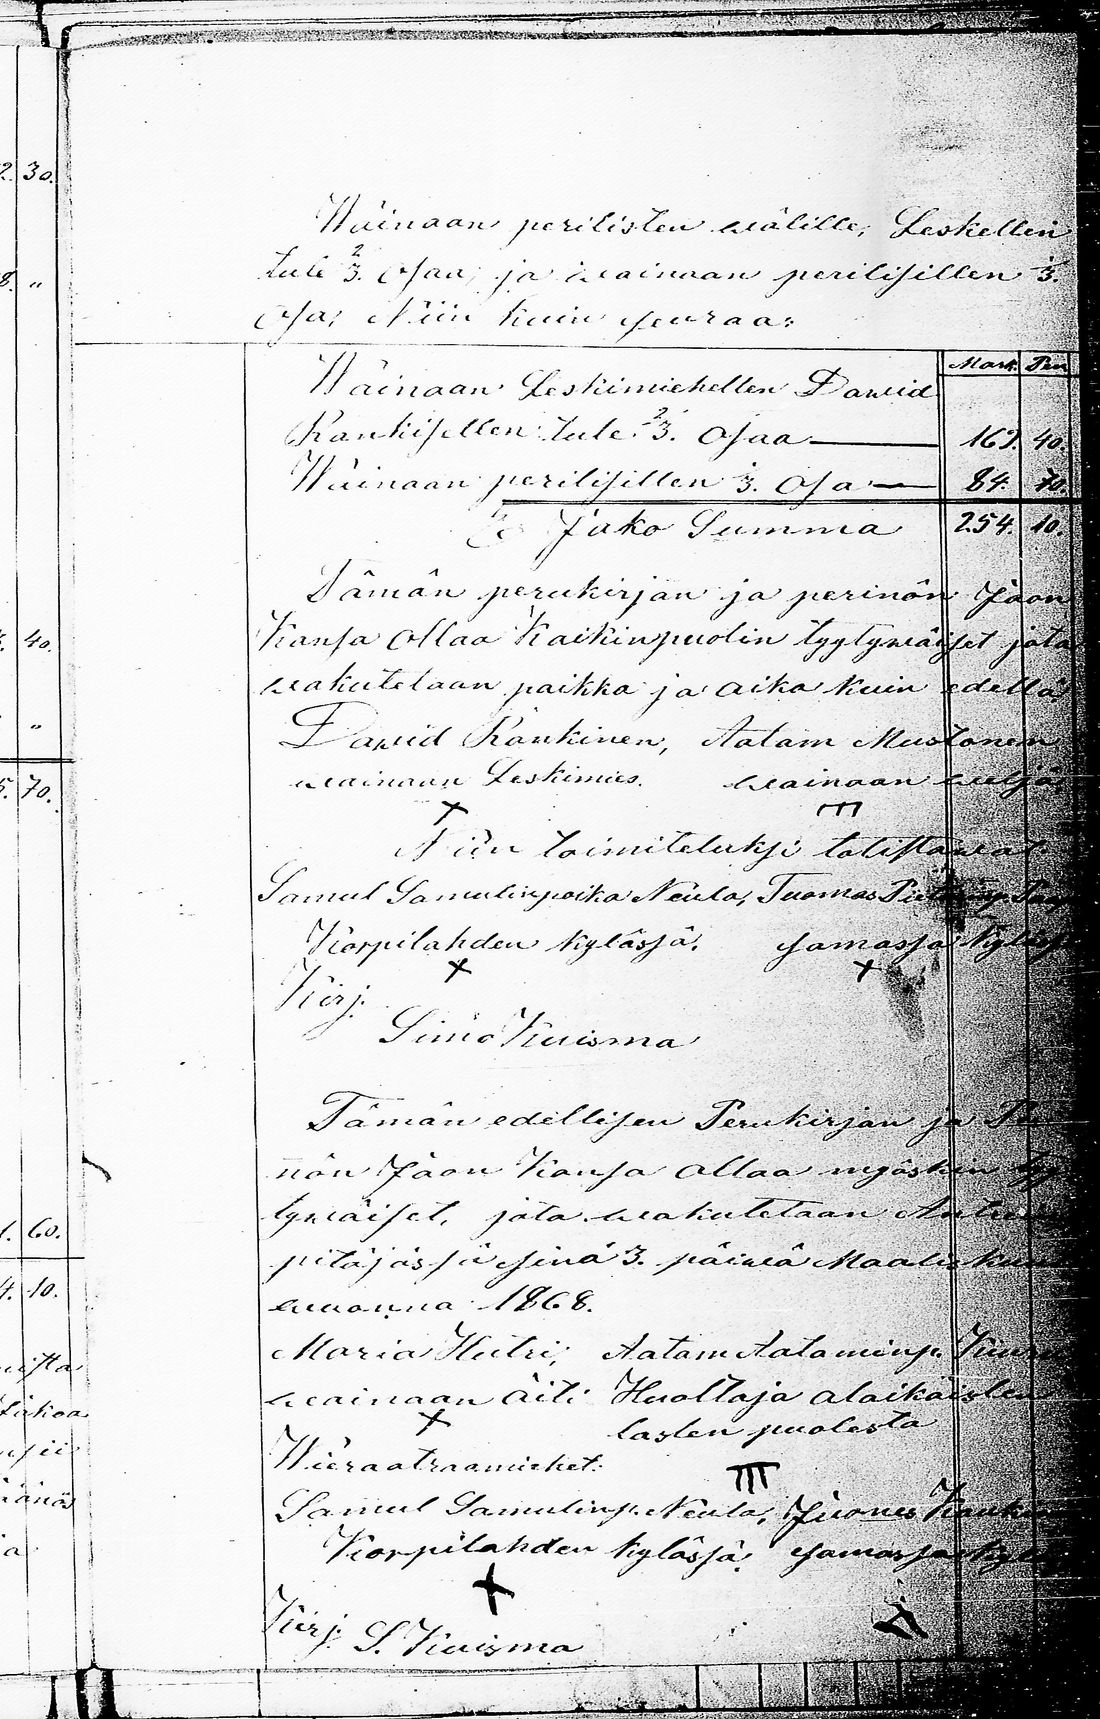 2. 30.
8. "
40.
"
5. 70.
1. 60.
4. 10.
Wäinaan perilisten wälille, Leskellen
tule 2/3. Osaa, ja wainaan perilisillen 1/3.
Osa; Niin kuin seuraa:
Mark. Pen
Wäinaan Leskimiehellen Dawid
Rankisellen tule 2/3. Osaa — 169. 40.
Wäinaan perilisillen 1/3. Osa — 84. 70.
Jako Summa 254. 10.
Tämän perukirjan ja perinön Jaon
Kansa Ollaa Kaikinpuolin tyytywäiset jota
wakutetaan paikka ja aika kuin edellä
Dawid Rankinen, Aatam Mustonen
wainaan Leskimies. wainaan weljä
X III
Niin toimiteluksi totistawat
Samul Samulinpoika Neula, Tuomas
Korpilahden kylässä. samassa kylässä
X X
Kirj.
Simo Kuisma
Tämän edellisen Perukirjan ja
nön Jaon Kansa Ollaa myöskin
tywäiset, jota wakutetaan
pitäjässä sinä 3. päiwä Maaliskuu
wuonna 1868.
Maria Hutri, Aatam Aataminp.
wainaan äiti Huoltaja alaikäisten
X lasten puolesta
Wieraatraamiehet: III
Samul Samulinp. Neula, Juonas
Korpilahden kylässä. samassa
X
Kirj. S. Kuisma